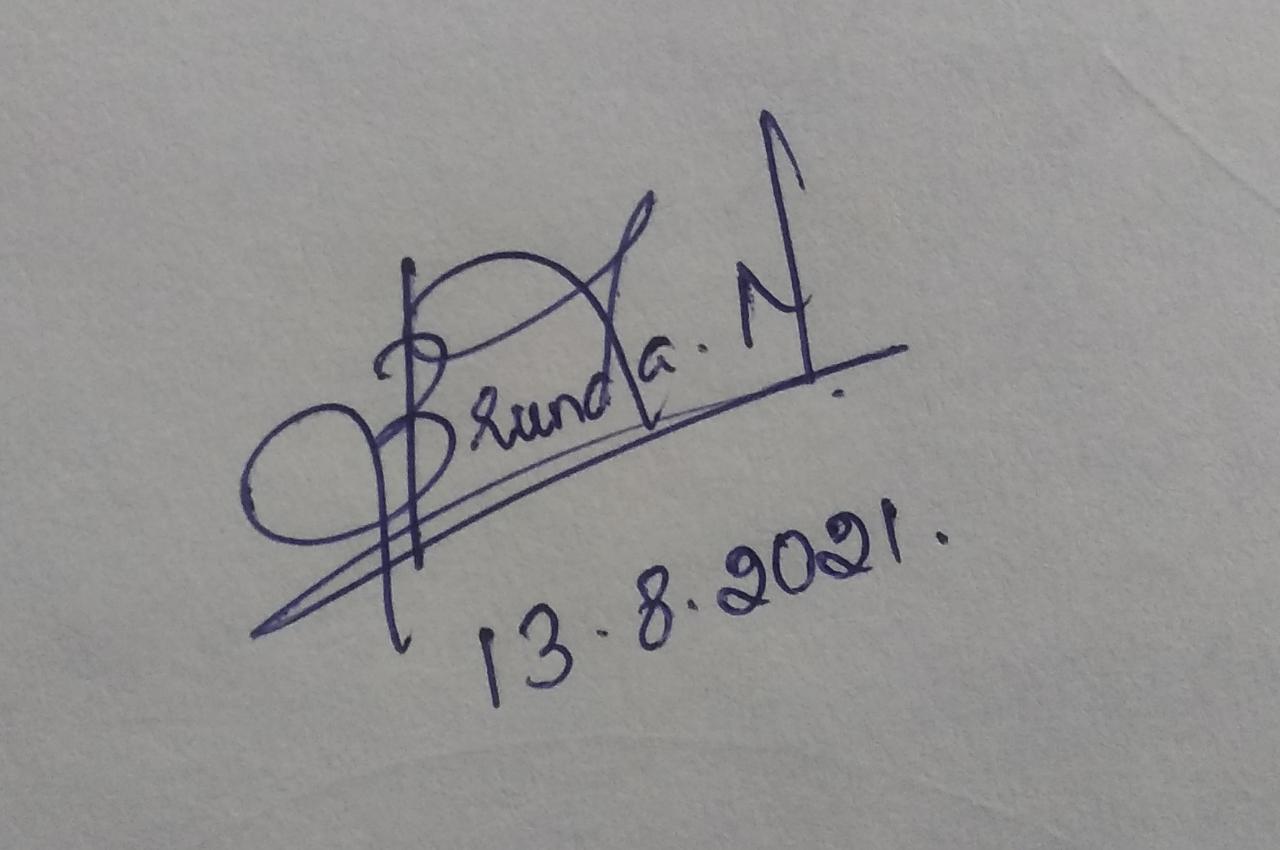 Brunda. N.
13.8.2021.